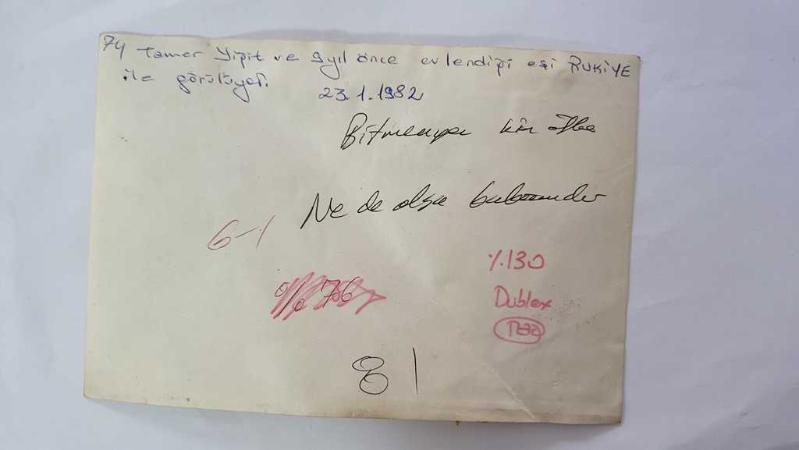 74 Tamer Yiğit ve 9 yıl önce evlendiği eşi RUKİYE
ile görülüyor.
23.1.1982
Bitmeyen kin
Ne de olsa babamdır
6-1
% 76
%130
Dublex
81